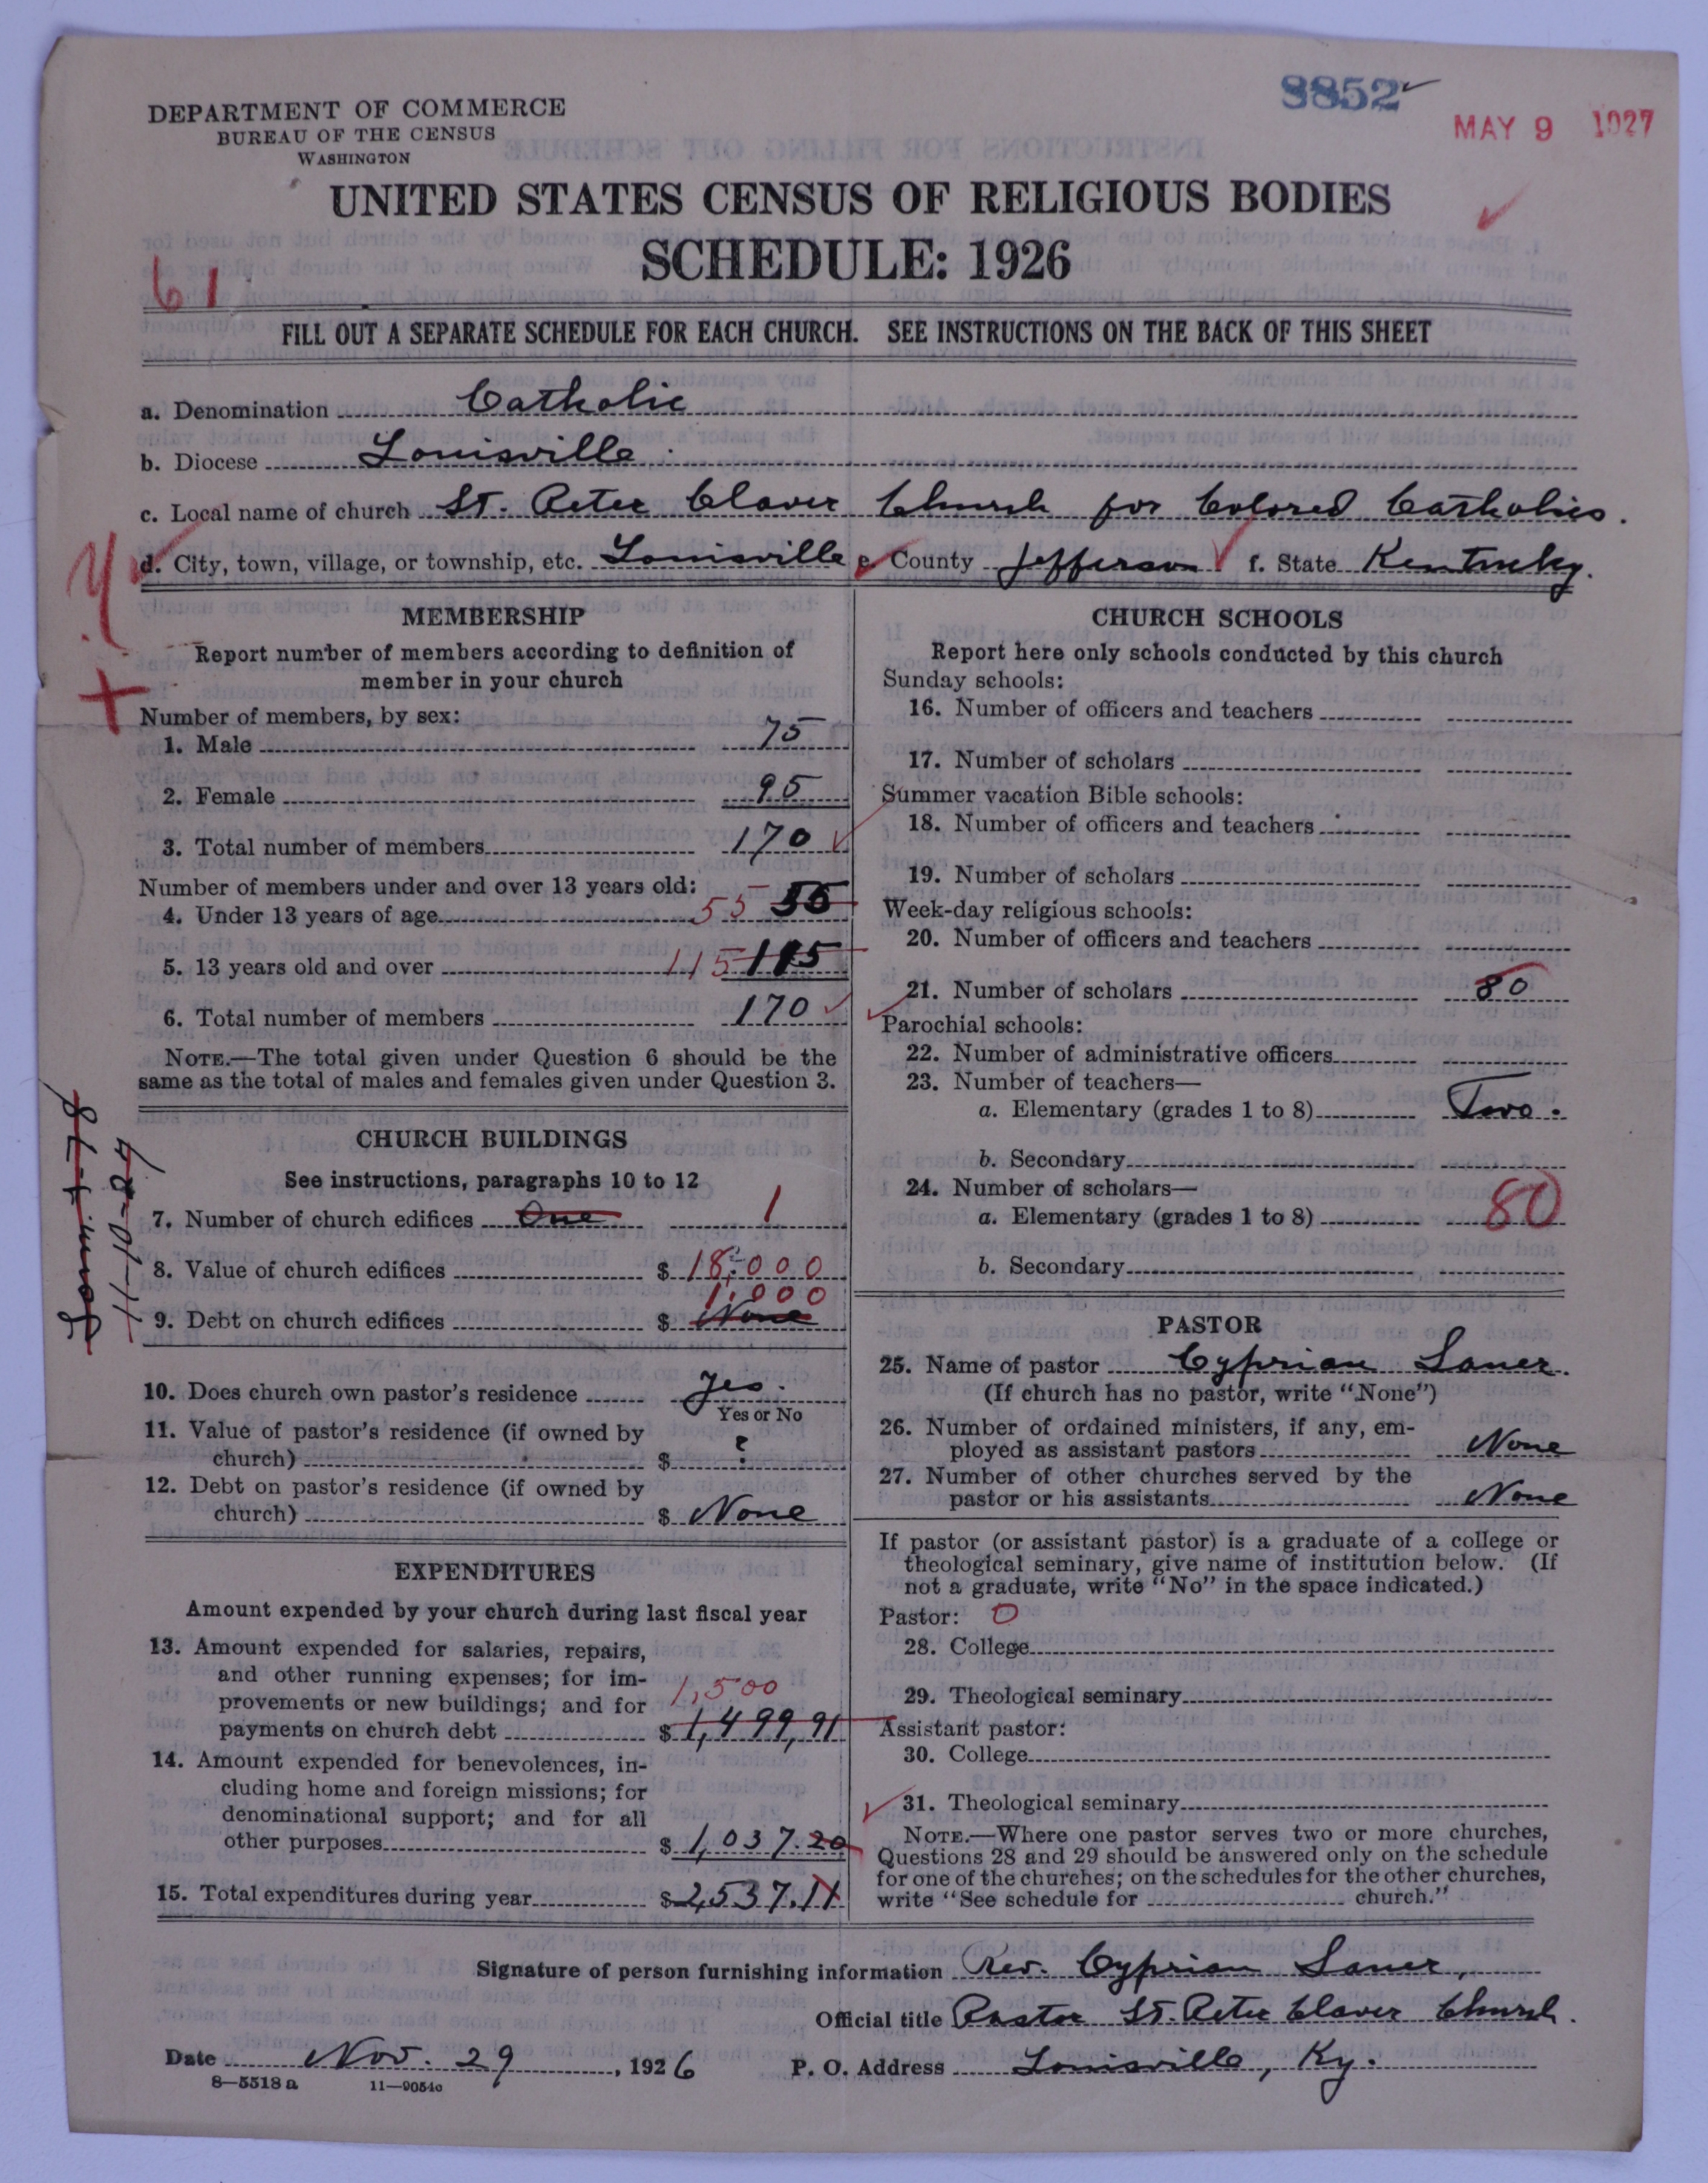 8852
MAY 9 1927
DEPARTMENT OF COMMERCE
BUREAU OF THE CENSUS
WASHINGTON
UNITED STATES CENSUS OF RELIGIOUS BODIES
SCHEDULE: 1926
61
FILL OUT A SEPARATE SCHEDULE FOR EACH CHURCH. SEE INSTRUCTIONS ON THE BACK OF THIS SHEET
a. Denomination Catholic
b. Diocese Louisville
c. Local name of church St. Peter Claver Church for Colored Catholics.
d. City, town, village, or township, etc. Louisville e. County Jefferson f. State Kentucky.
MEMBERSHIP
Report number of members according to definition of
member in your church
Number of members, by sex:
1. Male 75
2. Female 95
3. Total number of members 170
Number of members under and over 13 years old:
4. Under 13 years of age 55
5. 13 years old and over 115 115
6. Total number of members 170
NOTE.—The total given under Question 6 should be the
same as the total of males and females given under Question 3.
CHURCH BUILDINGS
See instructions, paragraphs 10 to 12
7. Number of church edifices One 1
8. Value of church edifices $ 18,000
1,000
9. Debt on church edifices $ None
10. Does church own pastor's residence Yes.
Yes or No
11. Value of pastor's residence (if owned by
church) $ ?
12. Debt on pastor's residence (if owned by
church) $ None
EXPENDITURES
Amount expended by your church during last fiscal year
13. Amount expended for salaries, repairs,
and other running expenses; for im-
provements or new buildings; and for 1,500
payments on church debt $ 1,499,91
14. Amount expended for benevolences, in-
cluding home and foreign missions; for
denominational support; and for all
other purposes $ 1,037.20
15. Total expenditures during year $ 2,537.11
CHURCH SCHOOLS
Report here only schools conducted by this church
Sunday schools:
16. Number of officers and teachers
17. Number of scholars
Summer vacation Bible schools:
18. Number of officers and teachers
19. Number of scholars
Week-day religious schools:
20. Number of officers and teachers
21. Number of scholars 80
Parochial schools:
22. Number of administrative officers
23. Number of teachers—
a. Elementary (grades 1 to 8) Two.
b. Secondary
24. Number of scholars—
a. Elementary (grades 1 to 8) 80
b. Secondary
PASTOR
25. Name of pastor Cyprian Sauer.
(If church has no pastor, write "None")
26. Number of ordained ministers, if any, em-
ployed as assistant pastors None
27. Number of other churches served by the
pastor or his assistants None
If pastor (or assistant pastor) is a graduate of a college or
theological seminary, give name of institution below. (If
not a graduate, write "No" in the space indicated.)
Pastor: 0
28. College
29. Theological seminary
Assistant pastor:
30. College
31. Theological seminary
NOTE.—Where one pastor serves two or more churches,
Questions 28 and 29 should be answered only on the schedule
for one of the churches; on the schedules for the other churches,
write "See schedule for church."
Signature of person furnishing information Rev. Cyprian Sauer,
Official title Pastor St. Peter Claver Church.
Date Nov. 29, 1926 P. O. Address Louisville, Ky.
8—5518 a 11—9054c